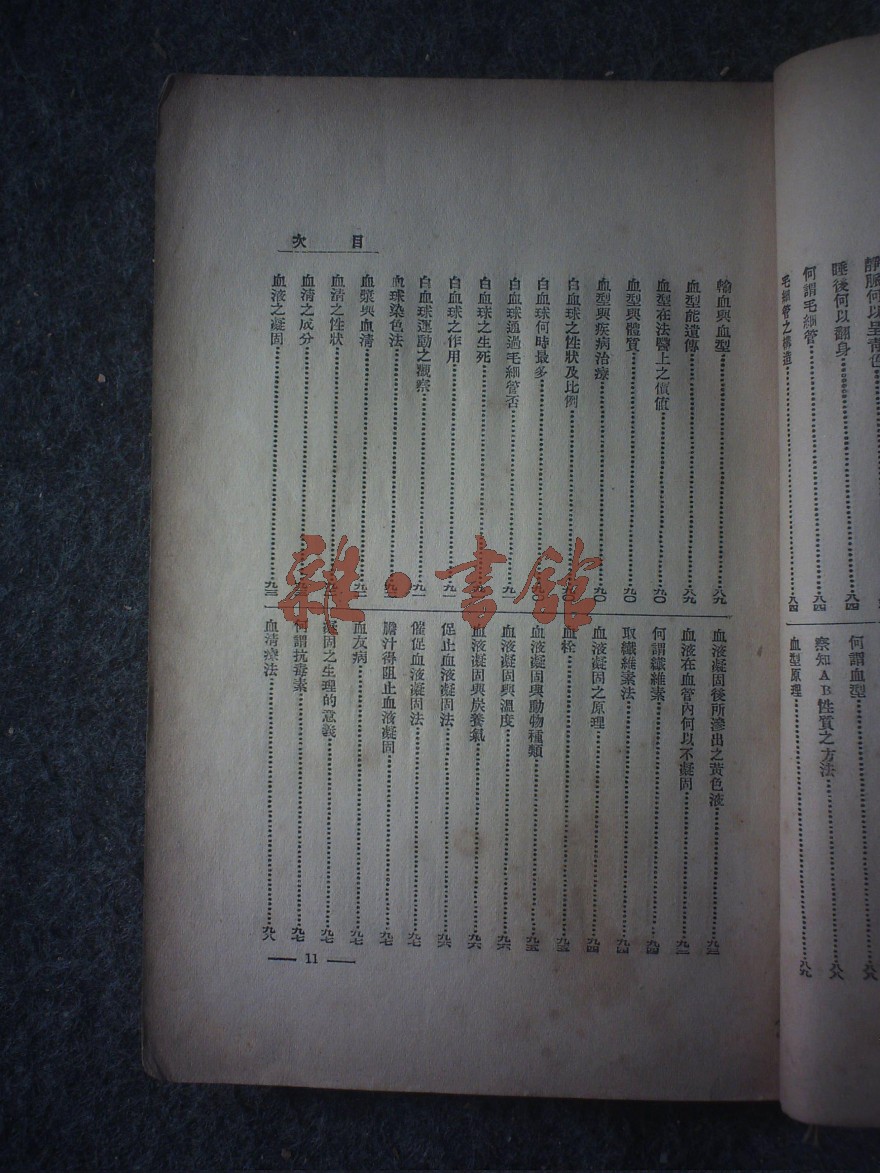 靜脈何以呈靑色
睡後何以翻身……八四
何謂毛細管……八四
毛細管之構造……八四
何謂血型……八八
察知AB性質之方法……八八
血型原理……八九
目次
輸血與血型……八九
血型能遺傳……八九
血型在法醫上之價値……九〇
血型與體質……九〇
血型與疾病治療……九〇
白血球之性狀及比例……九〇
白血球何時最多……九〇
白血球通過毛細管否……九一
白血球之生死……
白血球之作用……九一
白血球運動之觀察……九一
血球染色法……
血漿與血清……九二
血清之性狀……
血清之成分……
血液之凝固……九三
血液凝固後所滲出之黃色液……九三
血液在血管內何以不凝固……九三
何謂纖維素……九四
取纖維素法……九四
血液凝固之原理……九四
血栓……九五
血液凝固與動物種類……九五
血液凝固與溫度……九六
血液凝固與炭養氣……九六
促止血液凝固法……九六
催促血液凝固法……九七
膽汁得阻止血液凝固……九七
血友病……九七
凝固之生理的意義……九七
何謂抗毒素……九七
血清療法……九八
— 11 —
雜·書館